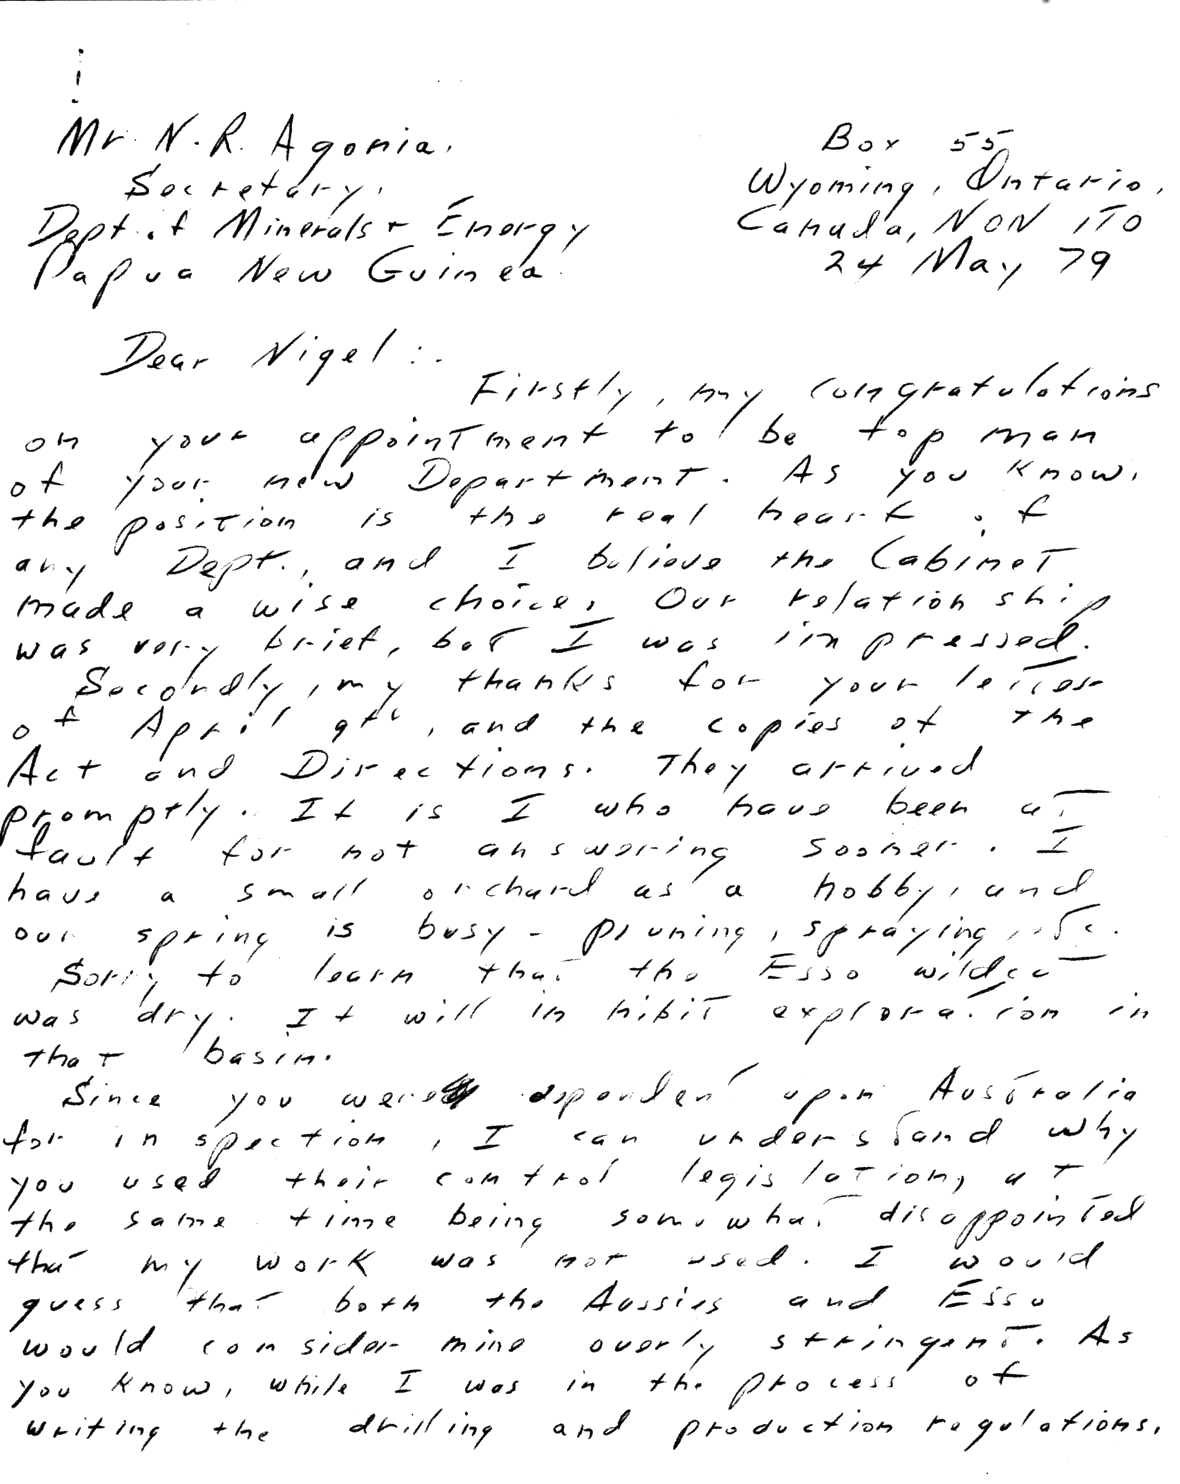 Mr. N.R. Agonia.
Secretary.
Dept. of Minerals + Energy
Papua New Guinea.
Box 55
Wyoming, Ontario,
Canada, N0N 1T0
24 May 79
Dear Nigel:-
Firstly, my congratulations
on your appointment to be top man
of your new Department. As you know,
the position is the real heart of
any Dept., and I believe the Cabinet
made a wise choice. Our relationship
was very brief, but I was impressed.
Secondly, my thanks for your letter
of April 9th, and the copies of the
Act and Directions. They arrived
promptly. It is I who have been at
fault for not answering sooner. I
have a small orchard as a hobby, and
our spring is busy - pruning, spraying, etc.
Sorry to learn that the Esso wildcat
was dry. It will inhibit exploration in
that basin.
Since you were dependent upon Australia
for inspection, I can understand why
you used their control legislation, at
the same time being somewhat disappointed
that my work was not used. I would
guess that both the Aussies and Esso
would consider mine overly stringent. As
you know, while I was in the process of
writing the drilling and production regulations,